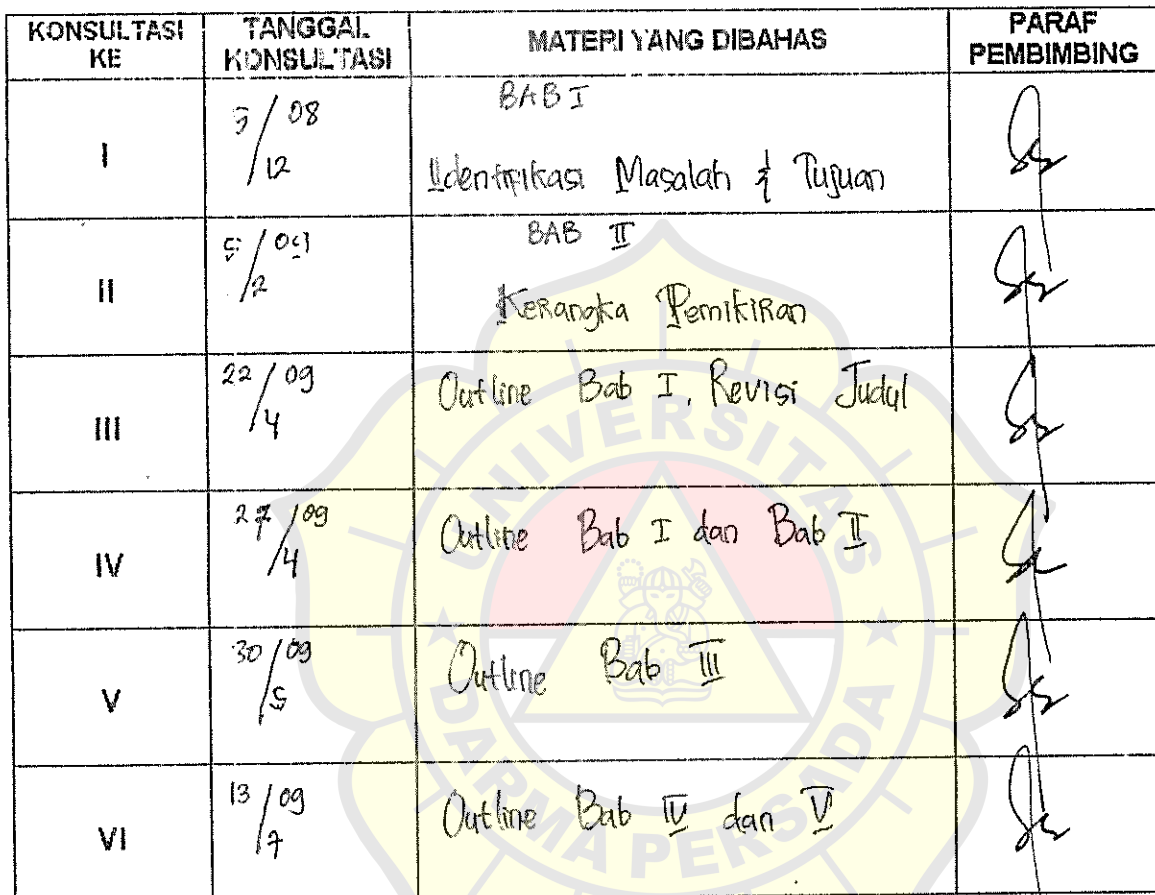 KONSULTASI KE
TANGGAL KONSULTASI
MATERI YANG DIBAHAS
PARAF PEMBIMBING
I
5/08/12
BAB I
Identifikasi Masalah & Tujuan
II
5/09/2
BAB II
Kerangka Pemikiran
III
22/09/4
Outline Bab I, Revisi Judul
IV
27/09/4
Outline Bab I dan Bab II
V
30/09/5
Outline Bab III
VI
13/09/7
Outline Bab IV dan V
UNIVERSITAS
DARMA PERSADA